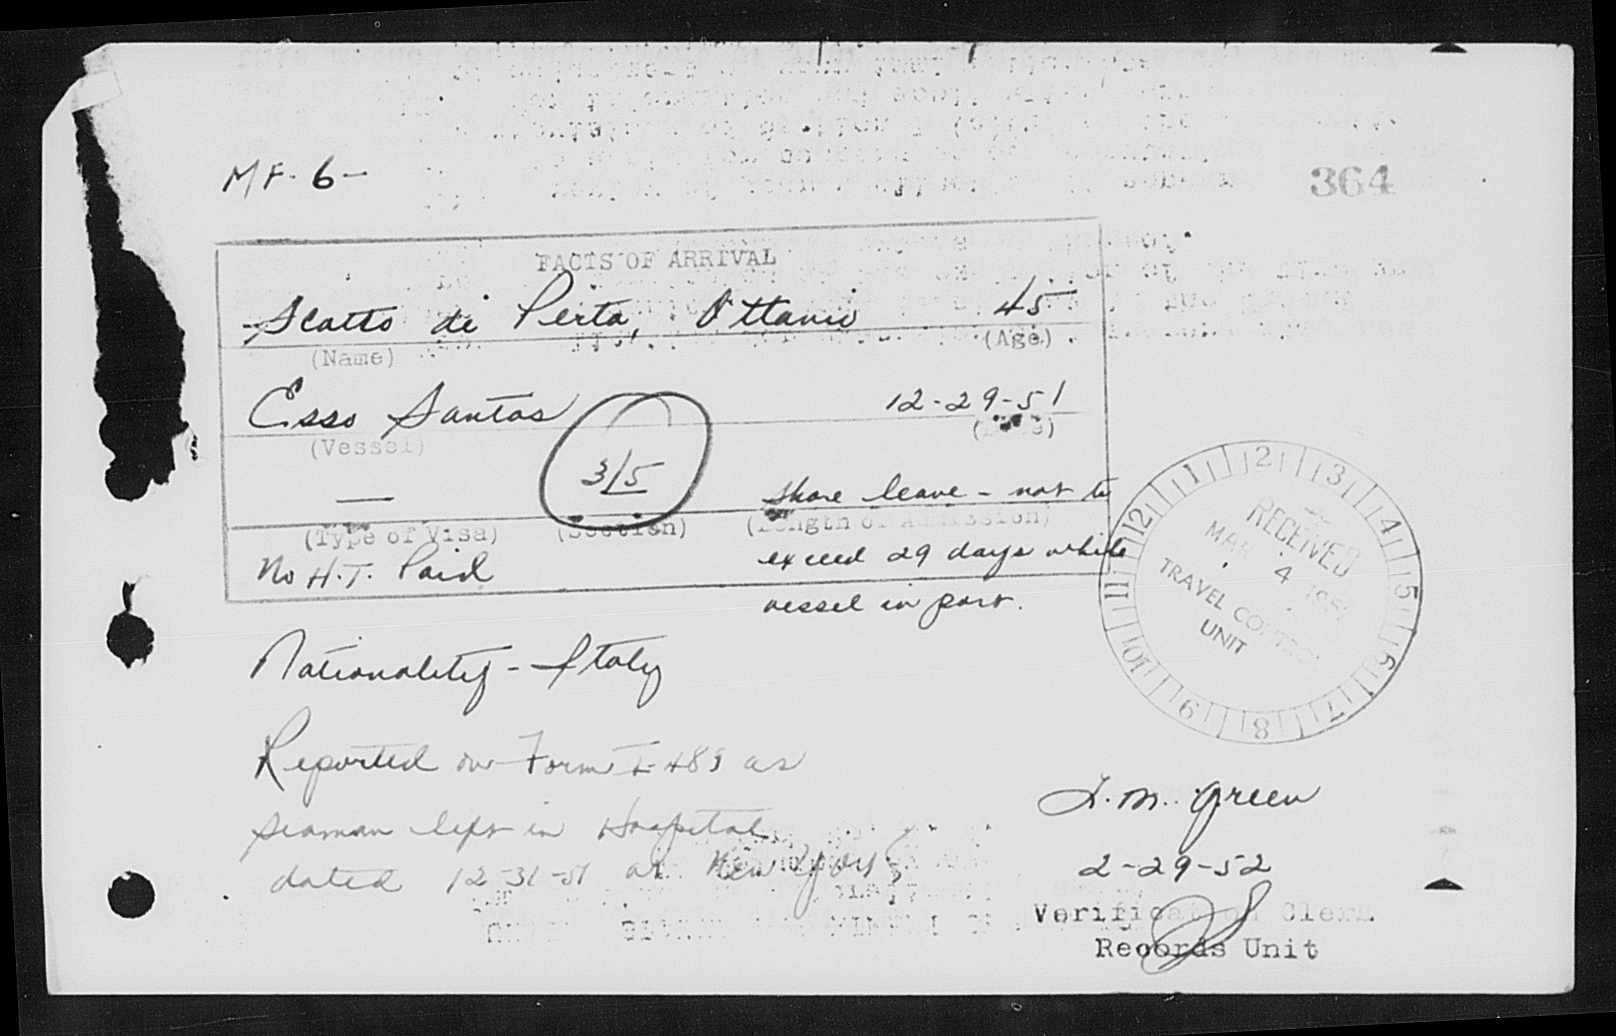 MF-6-
364
FACTS OF ARRIVAL
Scotto di Perta, Ottavio 45
(Name) (Age)
Esso Santos 12-29-51
(Vessel) (Date)
— 3/5 Shore leave - not to
(Type of Visa) (Section) (Length of Admission)
No H.T. Paid exceed 29 days while
vessel in port.
Nationality - Italy
Reported on Form I-489 as
seaman left in Hospital
dated 12-31-51 at New York
L.M. Green
2-29-52
Verification Clerk
Records Unit
12 1 2 3 4 5 6 7 8 9 10 11
RECEIVED
MAR 4 1952
TRAVEL CONTROL
UNIT